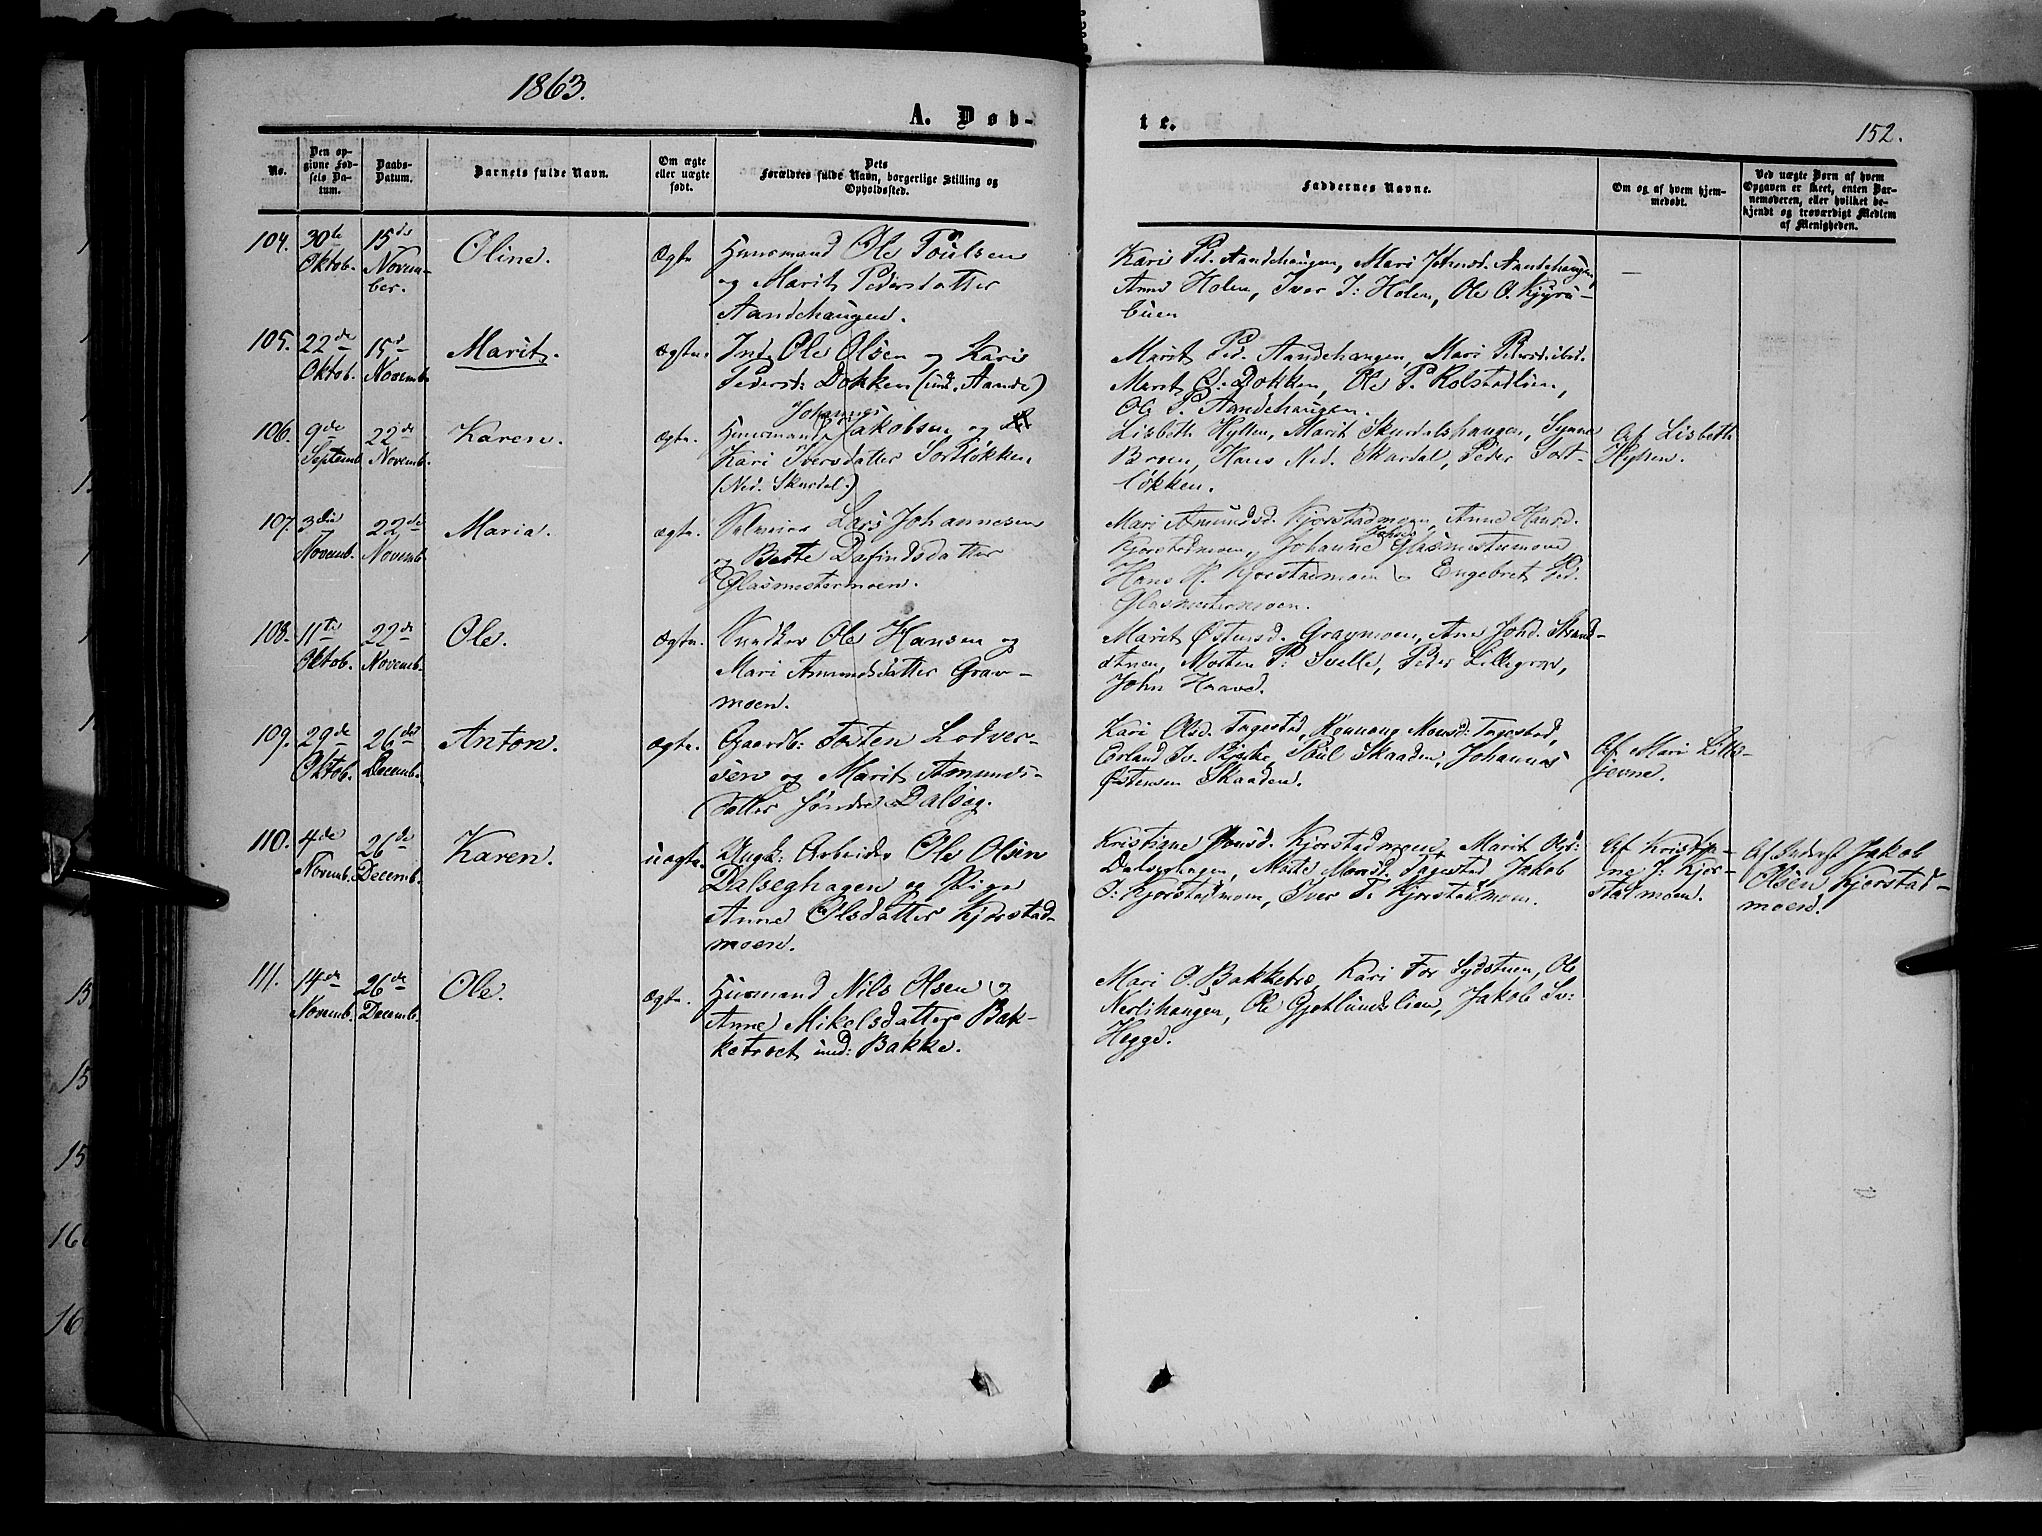 1863.
A. Døb-
te.
152.
No.
Den op-
givne Fød-
sels Da-
tum.
Daabs-
Datum.
Barnets fulde Navn.
Om ægte
eller uægte
født.
Dets
Forældres fulde Navn, borgerlige Stilling og
Opholdssted.
Faddernes Navne.
Om og af hvem hjem-
medøbt.
Ved uægte Børn af hvem
Opgaven er skeet, enten Bar-
nemoderen, eller hvilket be-
kjendt og troværdigt Medlem
af Menigheden.
104. 30te Oktob. 15de Novem-
ber. Oline. Ægte Huusmand Ole Poulsen
og Marit Pedersdatter
Aandehaugen.
Kari Ped. Aandehaugen, Mari Johnsd. Aandehaugen,
Anne Holen, Iver I: Holen, Ole O.
buen
105. 22de Oktob. 15d Novemb. Marit. ægte. Ind. Ole Olsen og Kari
Pedersd: Dokken (und. Aande)
Marit Ped. Aandehaugen, Mari
Marit O: Dokken, Ole P. Kolstadlien,
Ole P. Aandehaugen.
106. 9de Septemb. 22de Novemb. Karen. ægte. Huusmand Johannes Jakobsen og
Kari Iversdatter Sortløkken
(Ned. Skurdal.)
Lisbeth Hytten, Marit Skurdalshaugen, Synne
Broen, Hans Ned. Skurdal, Peder Sort-
løkken.
Af Lisbeth
Hytten.
107. 3die Novemb. 22de Novemb. Maria. ægte. Lars Johannesen
og Berte Dafindsdatter
Glasmestermoen.
Mari Amundsd. Kjorstadmoen, Anne Hansd.
Kjorstadmoen, Johanne Glasmestermoen
Hans H. Kjorstadmoen og Engebret Ped.
Glasmestermoen.
108. 11te Oktob. 22de Novemb. Ole. ægte. Snedker Ole Hansen og
Mari Amundsdatter Grav-
moen.
Marit Østensd. Gravmoen, Ane Johd. Strand-
stuen, Morten P: Svelle, Peder Lillegrav,
John Haave.
109. 29de Oktob. 26de Decemb. Anton. ægte. Gaardb: Tosten Lodver-
sen og Marit Amunds-
datter søndre Dalseg.
Kari Olsd. Tagestad, Rønnoug Monsd: Tagestad,
Erland Iv. Bjerke, Poul Skaaden, Johannes
Østensen Skaaden.
Af Mari Lille-
jevne.
110. 4de Novemb. 26de Decemb. Karen. uægte. Ungk: Arbeider Ole Olsen
Dalseghagen og Pige
Anne Olsdatter Kjorstad-
moen.
Kristiane Jonsd. Kjorstadmoen, Marit Olsd:
Dalseghagen, Mette Monsd. Tagestad, Jakob
O: Kjorstadmoen, Iver T. Kjorstadmoen.
Af Kristia-
ne J: Kjor-
stadmoen.
Af Inderst Jakob
Olsen Kjorstad-
moen.
111. 14de Novemb. 26de Decemb. Ole. ægte. Huusmand Nils Olsen og
Anne Mikelsdatter Bak-
ketrøet und: Bakke.
Mari O. Bakketrø, Kari Tor Sydstuen, Ole
Nerlihaugen, Ole Gjetlundslien, Jakob Sv:
Hegge.